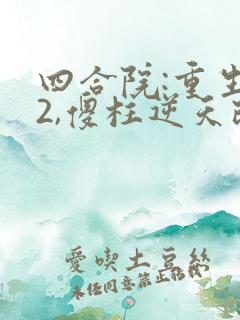 四合院:重生
2,傻柱逆天改
愛喫土豆絲
未经同意禁止转载